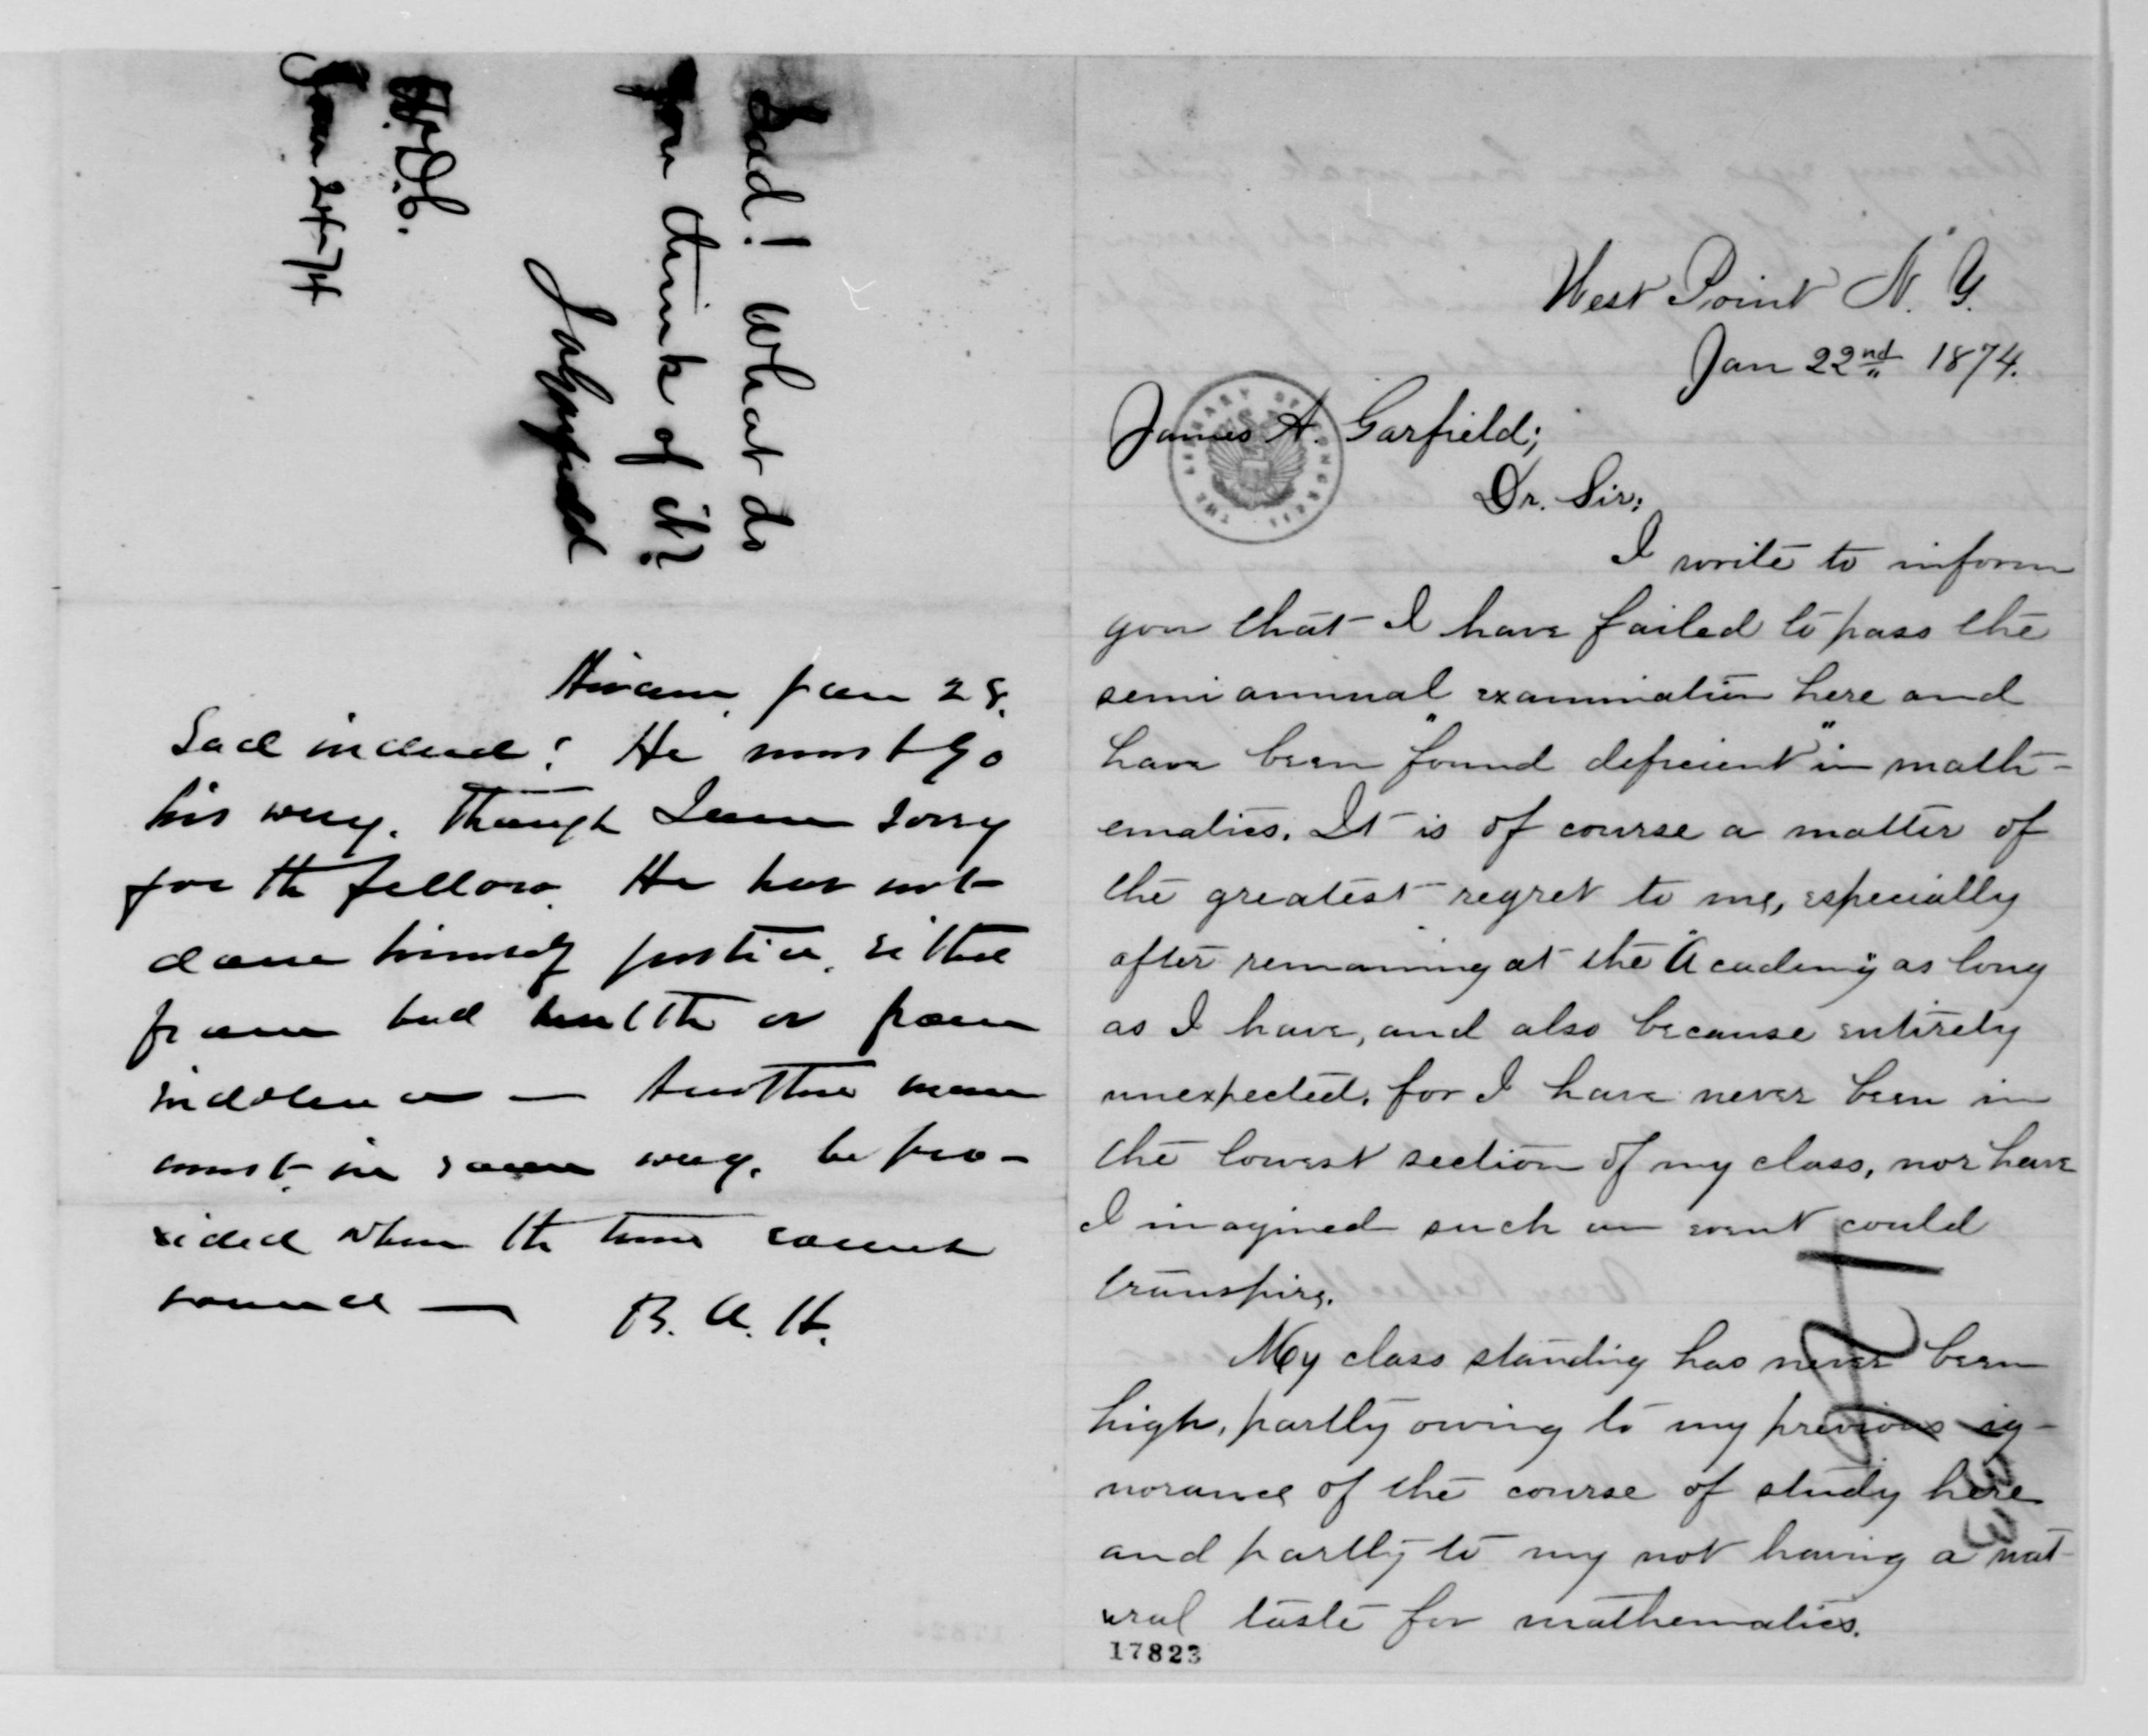 Sad! What do
you think of it?
JAGarfield
W. D.C.
Jan 24-74
Hiram, Jan 28.
Sad indeed! He must go
his way. Though I am sorry
for the fellow. He has not
done himself justice, either
from bad health or from
indolence — Another man
must, in some way, be pro-
vided when the time comes
round — B. A. H.
West Point N. Y.
Jan 22nd 1874.
James A. Garfield;
THE LIBRARY OF CONGRESS
Dr. Sir;
I write to inform
you that I have failed to pass the
semi annual examination here and
have been "found deficient" in math-
ematics. It is of course a matter of
the greatest regret to me, especially
after remaining at the "Academy" as long
as I have, and also because entirely
unexpected, for I have never been in
the lowest section of my class, nor have
I imagined such an event could
transpire.
My class standing has never been
high, partly owing to my previous ig-
norance of the course of study here
and partly to my not having a nat-
ural taste for mathematics.
17823